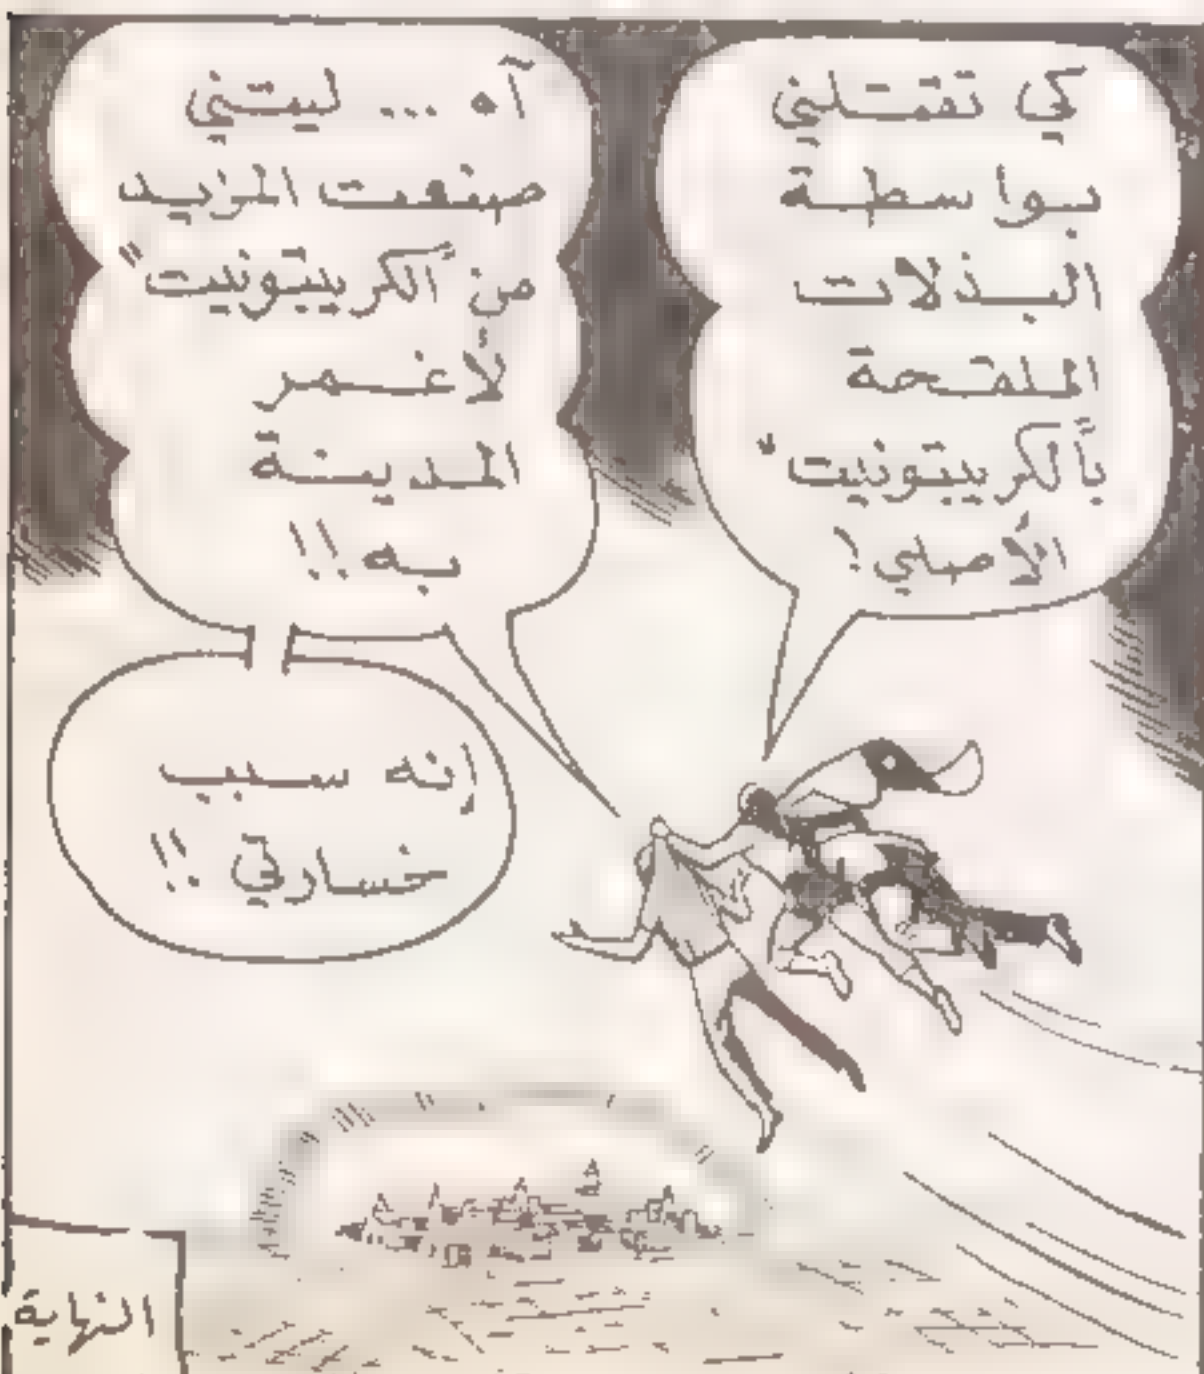 كي تقتلني
بواسطة
البذلات
الملقحة
بـ"الكريبتونيت"
الأصلي!
آه ... ليتني
صنعت المزيد
من "الكريبتونيت"
لأغمر
المدينة
به!!
إنه سبب
خسارتي!!
النهاية